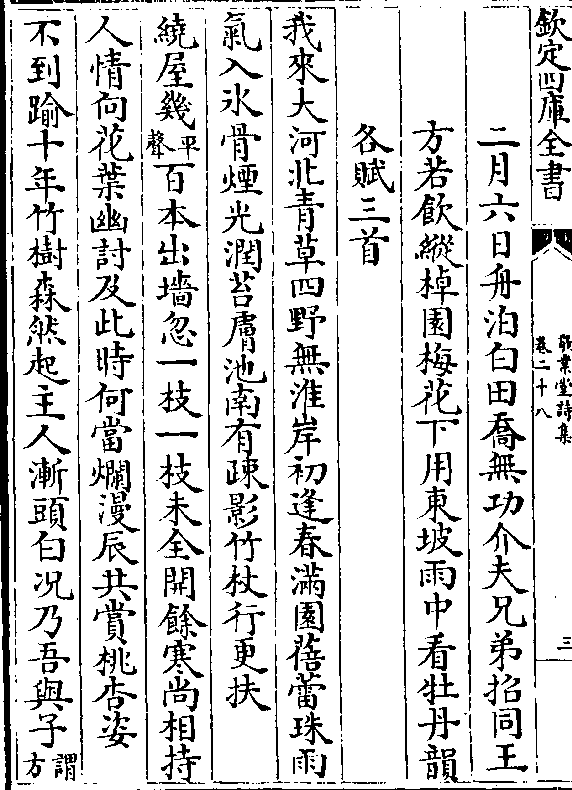 欽定四庫全書
敬業堂詩集
卷二十八
三
二月六日舟泊白田喬無功介夫兄弟招同王
方若飲縱棹園梅花下用東坡雨中看牡丹韻
各賦三首
我來大河北青草四野無淮岸初逢春滿園蓓蕾珠雨
氣入氷骨煙光潤苔膚池南有疎影竹杖行更扶
繞屋幾平聲百本出墻忽一枝一枝未全開餘寒尚相持
人情向花葉幽討及此時何當爛漫辰共賞桃杏姿
不到踰十年竹樹森然起主人漸頭白况乃吾與子謂方